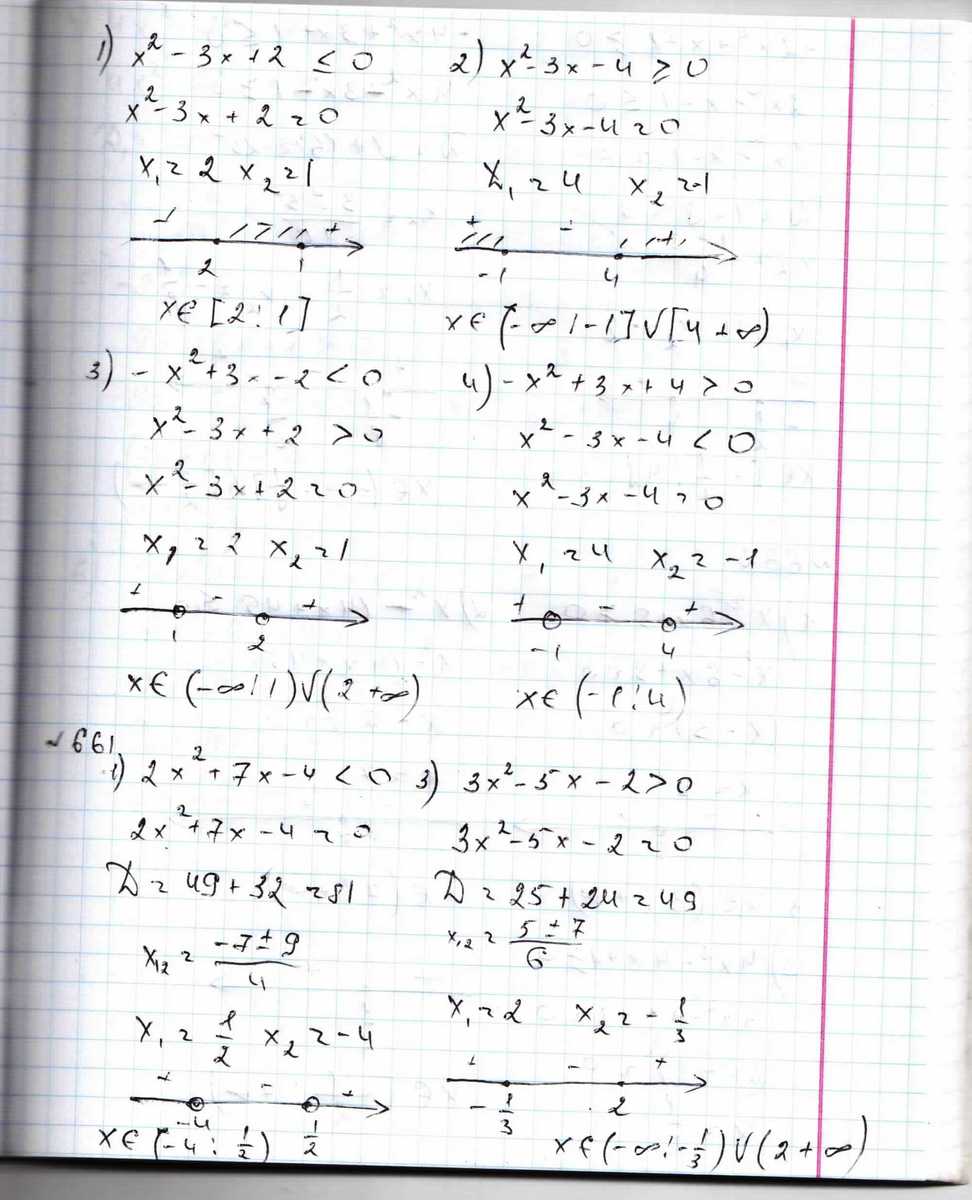 1) x² - 3x + 2 ≤ 0
x² - 3x + 2 = 0
x₁ = 2 x₂ = 1
+
2 1
x ∈ [2; 1]
2) x² - 3x - 4 ≥ 0
x² - 3x - 4 = 0
x₁ = 4 x₂ = -1
+ - +
-1 4
x ∈ (-∞; -1] ∨ [4 +∞)
3) - x² + 3x - 2 < 0
x² - 3x + 2 > 0
x² - 3x + 2 = 0
x₁ = 2 x₂ = 1
+ - +
1 2
x ∈ (-∞; 1) ∨ (2 +∞)
4) - x² + 3x + 4 > 0
x² - 3x - 4 < 0
x² - 3x - 4 = 0
x₁ = 4 x₂ = -1
+ - +
-1 4
x ∈ (-1; 4)
√661
1) 2x² + 7x - 4 < 0
2x² + 7x - 4 = 0
D = 49 + 32 = 81
x₁₂ = (-7 ± 9)/4
x₁ = 1/2 x₂ = -4
+ - +
-4 1/2
x ∈ (-4; 1/2)
3) 3x² - 5x - 2 > 0
3x² - 5x - 2 = 0
D = 25 + 24 = 49
x₁,₂ = (5 ± 7)/6
x₁ = 2 x₂ = -1/3
+ - +
-1/3 2
x ∈ (-∞; -1/3) ∨ (2 +∞)